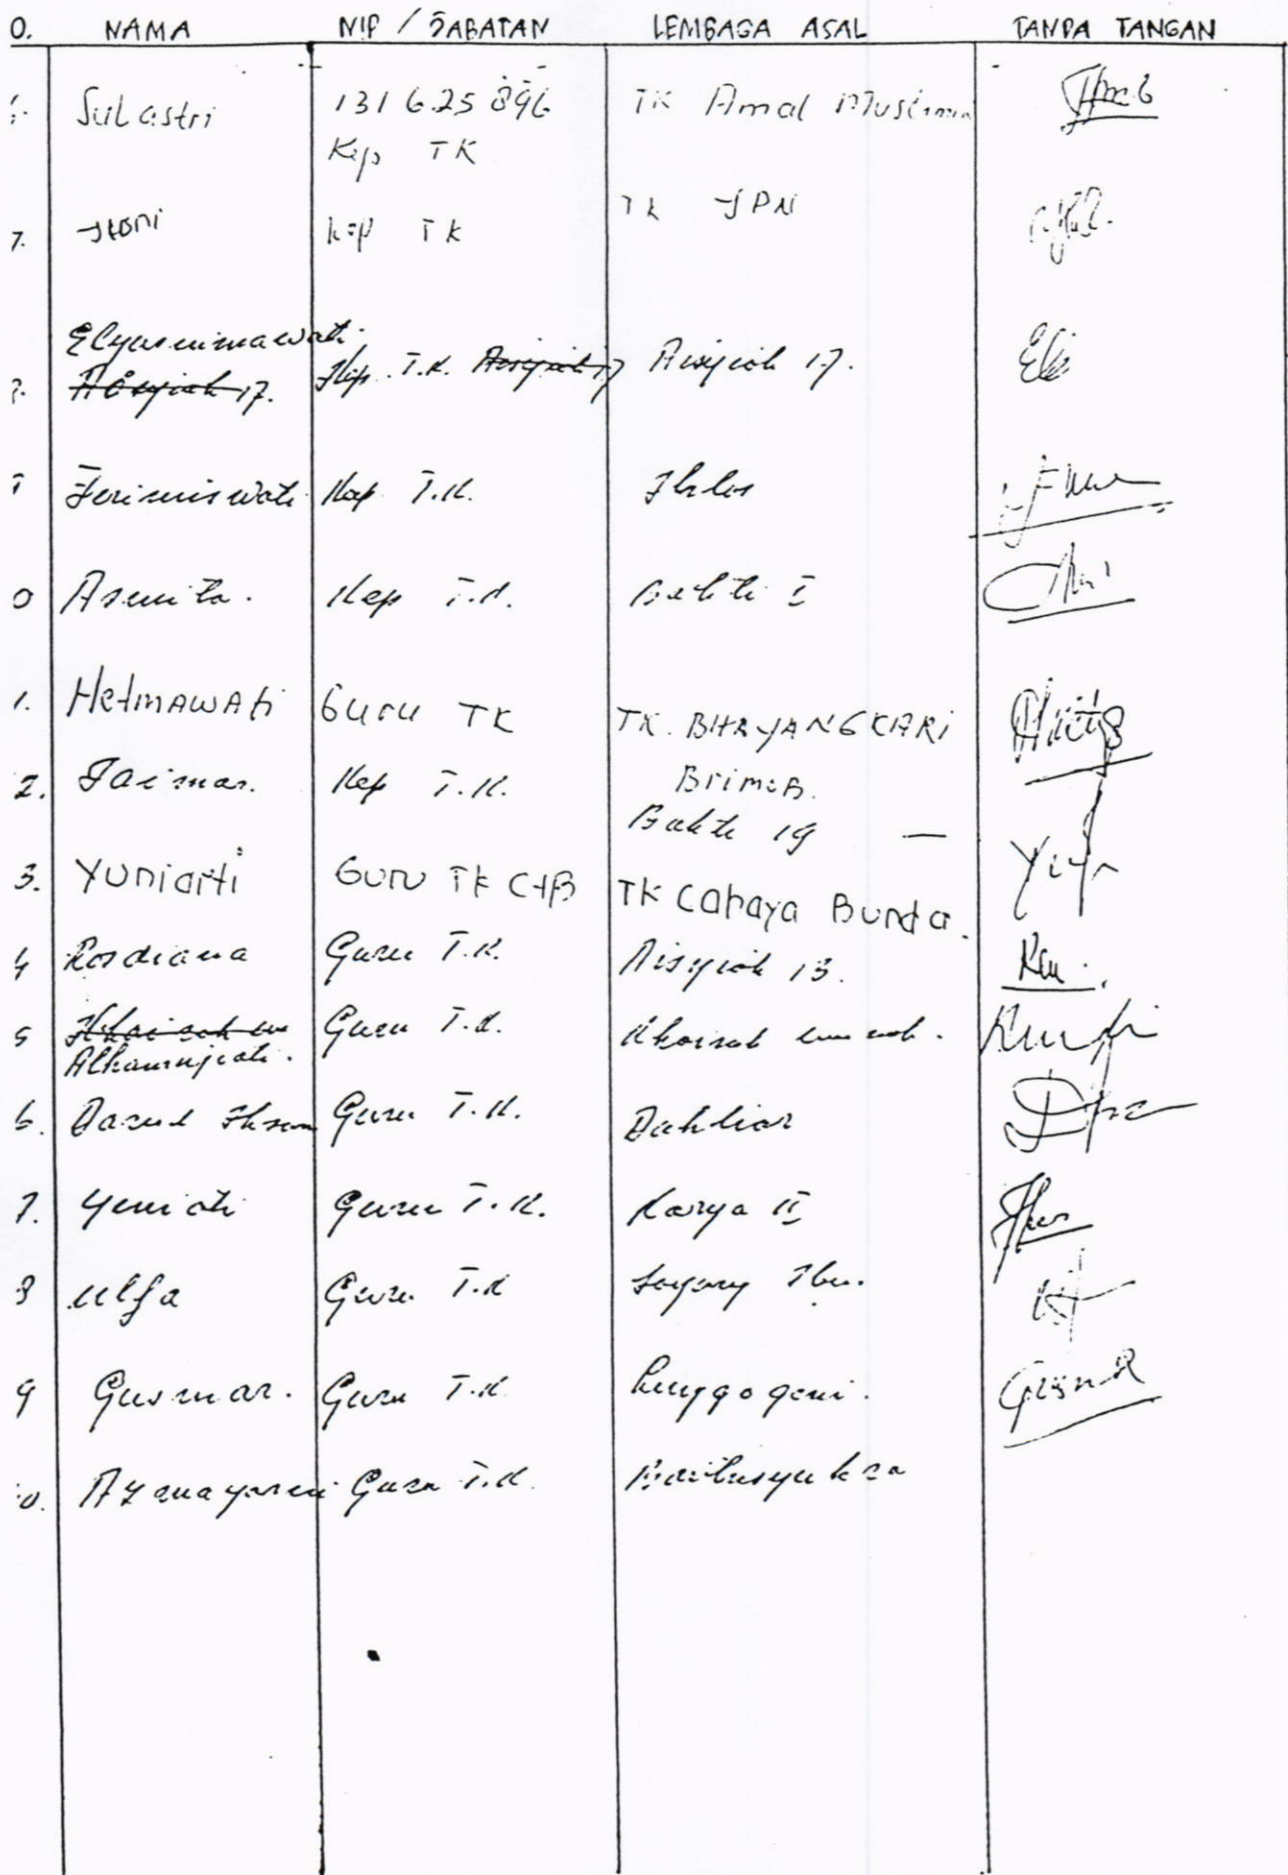 O. NAMA NIP / JABATAN LEMBAGA ASAL TANDA TANGAN
Sulastri 131 625 896 TK Amal Muslimin
Kep TK
7. Kep TK TK
Elyusnimawati
Aisyiah 17. Kep. T.K. Aisyiah 17 Aisyiah 17. Eli
Kep T.K.
0 Asmita. Kep T.K. Bakti I
1. Helmawati Guru TK TK. BHAYANGKARI
2. Kep T.K. Brimob.
Bakti 19 —
3. Yuniarti Guru TK CHB TK Cahaya Bunda.
4 Rosdiana Guru T.K. Aisyiah 13.
5 Guru T.K. Khairah ummah.
6. Darul Ihsan Guru T.K. Dahliar
7. Yuniati Guru T.K. Karya II
8 Ulfa Guru T.K Sayang Ibu.
9 Gusmar. Guru T.K
0. Guru T.K. Baitusyukra